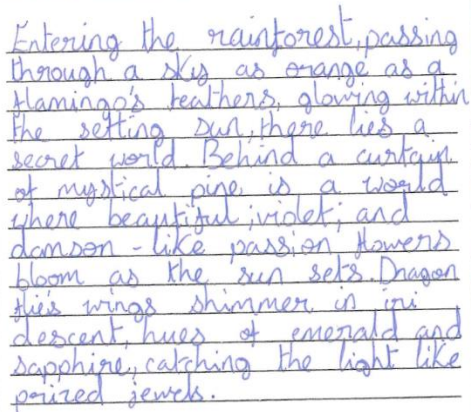 Entering the rainforest, passing
through a sky as orange as a
flamingo's feathers, glowing within
the setting sun, there lies a
secret world. Behind a curtain
of mystical pine is a world
where beautiful, violet, and
damson-like passion flowers
bloom as the sun sets. Dragon
flie's wings shimmer in iri
descent, hues of emerald and
sapphire, catching the light like
prized jewels.